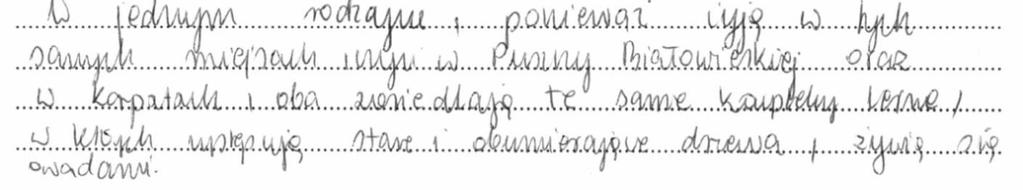 W jednym rodzaju, ponieważ żyją w tych
samych miejscach innymi w Puszczy Białowieskiej oraz
w Karpatach i oba zasiedlają te same kompleksy leśne,
w których występują stare i obumierające drzewa, żywią się
owadami.